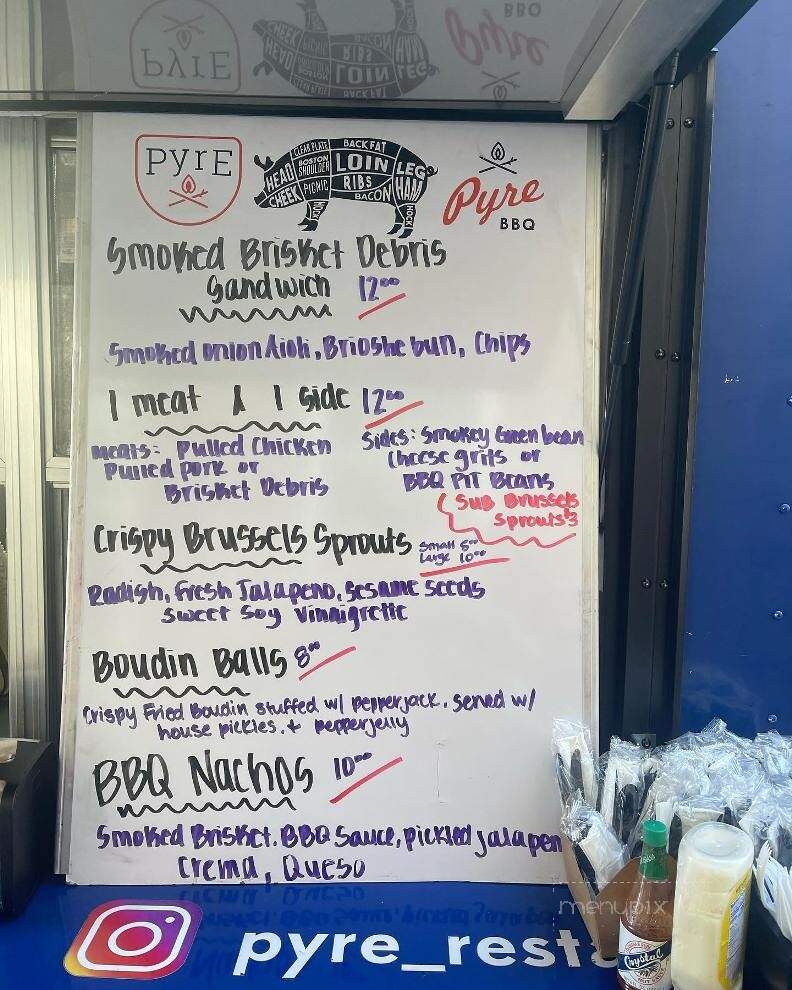 PyrE
HEAD
CHEEK
CLEAR PLATE
BOSTON SHOULDER
PICNIC
HOCK
BACK FAT
LOIN
RIBS
BACON
LEG
HAM
HOCK
Pyre
BBQ
Smoked Brisket Debris
Sandwich 12⁰⁰
Smoked onion Aioli, Brioshe bun, Chips
1 meat & 1 side 12⁰⁰
meats: Pulled Chicken
Pulled pork or
Brisket Debris
Sides: Smokey Green bean
Cheese grits or
BBQ PIT Beans
(Sub Brussels
Sprouts $3
Crispy Brussels Sprouts
Small 5⁰⁰
Large 10⁰⁰
Radish, Fresh Jalapeno, sesame seeds
Sweet Soy Vinaigrette
Boudin Balls 8⁰⁰
Crispy Fried Boudin stuffed w/ pepperjack. served w/
house pickles. + pepperjelly
BBQ Nachos 10⁰⁰
Smoked Brisket. BBQ Sauce, pickled jalapen
Crema, Queso
menupix
pyre_rest
Crystal